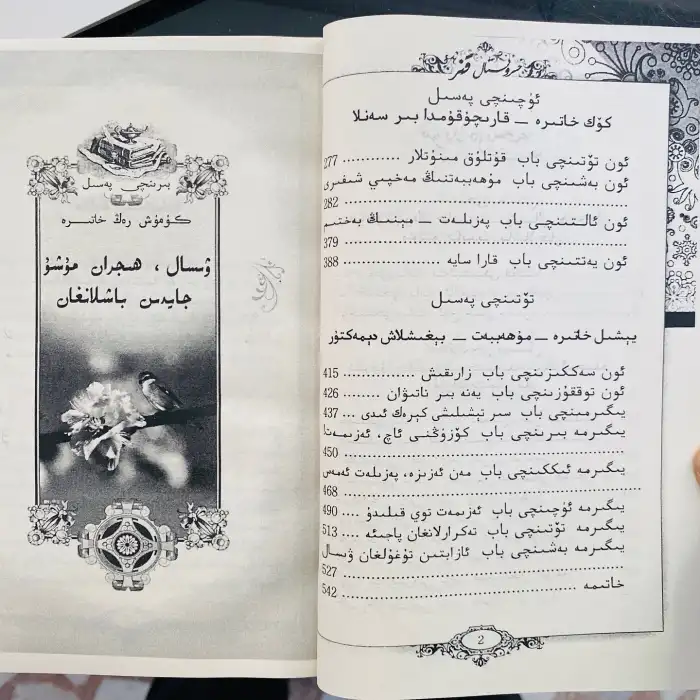 بىرىنچى پەسىل
كۈمۈش رەڭ خاتىرە
ۋىسال، ھىجران مۇشۇ
جايدىن باشلانغان
ئۈچىنچى پەسىل
كۆك خاتىرە — قارىچۇقۇمدا بىر سەنلا
ئون تۆتىنچى باب قۇتلۇق مىنۇتلار ........... 277
ئون بەشىنچى باب مۇھەببەتنىڭ مەخپىي شىفىرى
282
ئون ئالتىنچى باب پەزىلەت — مېنىڭ بەختىم
379
ئون يەتتىنچى باب قارا سايە .......... 388
تۆتىنچى پەسىل
يېشىل خاتىرە — مۇھەببەت — بېغىشلاش دېمەكتۇر
ئون سەككىزىنچى باب زارىقىش .......... 415
ئون توققۇزىنچى باب يەنە بىر ناتىۋان ........ 426
يىگىرمىنچى باب سىر ئېشىلىشى كېرەك ئىدى .... 437
يىگىرمە بىرىنچى باب كۆزۈڭنى ئاچ، ئەزىمەت!
450
يىگىرمە ئىككىنچى باب مەن ئەزىزە، پەزىلەت ئەمەس
468
يىگىرمە ئۈچىنچى باب ئەزىمەت توي قىلىدۇ .... 490
يىگىرمە تۆتىنچى باب تەكرارلانغان پاجىئە .... 513
يىگىرمە بەشىنچى باب ئازابتىن تۇغۇلغان ۋىسال
527
خاتىمە .......... 542
2